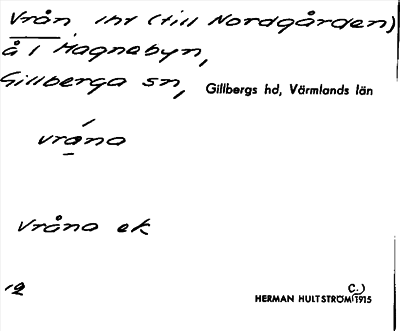 Vrån, iht (till Nordgården)
å i Magnebyn,
Gillberga sn, Gillbergs hd, Värmlands län
vråna
Vråna ek
12
C.)
HERMAN HULTSTRÖM 1915